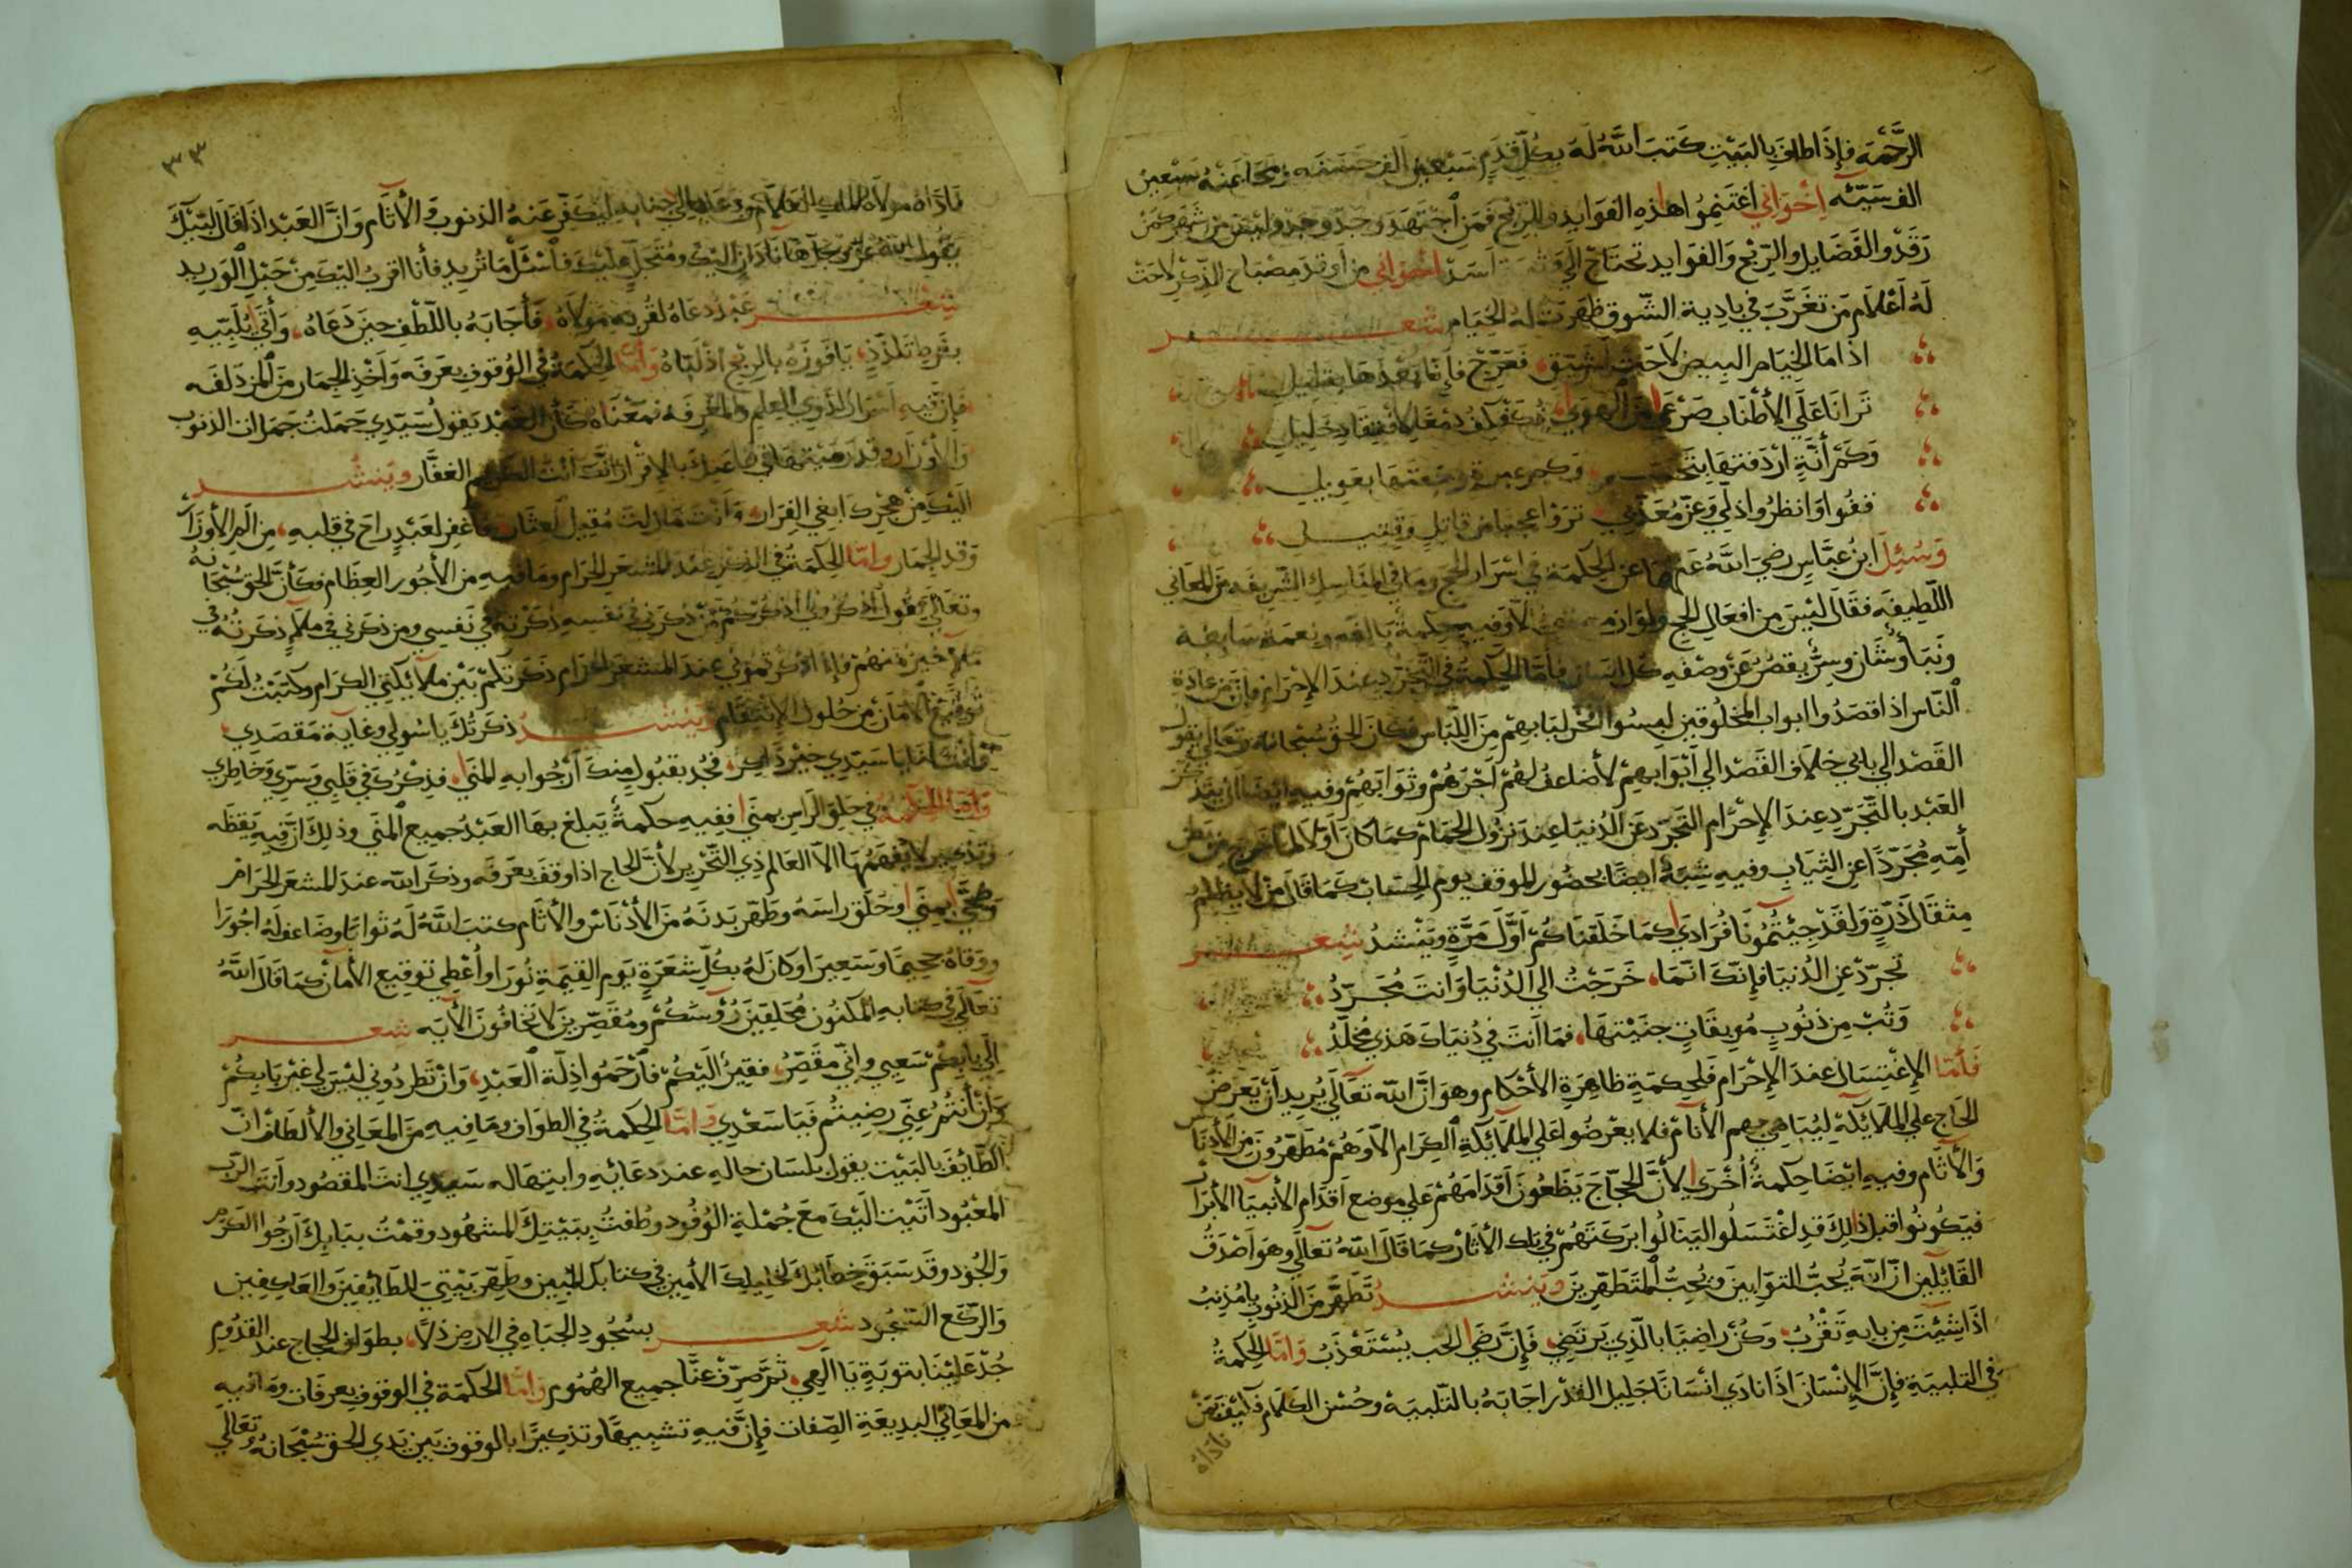 الرَّحْمَه فإِذَا طافَ بِالبَيْتِ كَتبَ اللَّهُ لَهُ بِكُلِّ قَدَمٍ سَبْعِينَ الف حَسَنَه ومَحَا عَنْهُ سَبْعِينَ
الف سَيّئه اِخْوَانِي اغتَنِمُوا هذِهِ الفَوَايدِ والرِّبْح فَمَن اجْتَهَد وجَدّ وجَدَ وليْسَ مَن سَهِرَ كمَنْ
رَقَدْ والفَضَايل والرِّبْح وَالفَوَايد تحتَاجْ الي اخْوَانِي من أوقدَ مِصْبَاح الذِّكْرِ لاحَتْ
لَهُ أعْلَام مَن تغَرَّبَ فِي بادِية الشّوق ظهَرَت لهُ الخِيَام شعر
اذا مَا الخِيَام البِيض لاَحَتْ فَعَرّج فإِنّا بَعْدَهَا بقَلِيل
تَرانَا عَلَي الأطْنَاب صَرْعَي مِنَ الهَوي
وَكمْ أَنَّةٍ اَرْدَفتهَا بتَحَسّر وكم عبرة بعَوِيل
قفُوا وَانظرُوا ذُلّي وَعزّ مُعَذّبي تَرَوْا عَجَبًا مِن قاتِلٍ وقَتِيل
وَسُئِلَ ابنُ عبَّاسٍ رضي اللَّهُ عَنهمَا عن الحِكمَة في اسْرَار الحَج ومَا في المنَاسِك الشّريفَه مِنَ المعَاني
اللَّطِيفَه فقَالَ ليْسَ مِن افعَالِ الحج ولوازمه شي الاّ وَفيهِ حكمةٌ بَالغَه ونِعمَة سَابغَة
ونَبَأ وشَان وسِرٌّ يقصُرُ عَنْ وصْفِهِ كل لسَان فأمّا الحِكمةُ في التّجَرّدِ عندَ الإحْرَام فإنّ مِن عَادَة
النّاس اذا قصَدُوا ابوابَ المخلُوقين لبِسُوا افخَر ثيَابِهِمْ مِنَ اللّبَاس فكانَ الحق سُبْحَانهُ وتَعَالي يقولُ
القَصْد الي بابي خِلاَف القَصْد الي أَبْوَابِهِمْ لأضاعفَ لهُمْ اَجْرَهُمْ وثَوَابَهُمْ وَفيهِ ايْضًا ان يتَذَكّرَ
العَبْد بالتّجَرّدِ عندَ الإحْرَام التّجَرّدَ عَن الدُّنيَا عِندَ نزُولِ الحِمَام كمَا كانَ أوّلاً لمّا خرَج مِن بَطن
أُمِّهِ مُجَرّدًا عَنِ الثّيَاب وفيهِ شِبْهٌ ايضًا بحضُور الموقف يوم الحِسَاب كَمَا قَالَ مَنْ لا يظلِمُ
مِثقَالَ ذَرّةٍ وَلقَدْ جِئتُمُونَا فُرَادَي كمَا خَلَقنَاكُمْ اَوّلَ مَرّةٍ ويُنْشدُ شعر
تجرّدْ عنِ الدُنيَا فإِنّكَ انّمَا خَرَجْتَ الي الدُنْيَا وَانتَ مُجَرّدُ
وَتُبْ مِن ذنُوبٍ مُوبِقَاتٍ جنَيْتهَا فمَا اَنتَ في دُنيَاكَ هَذي مُخَلّدُ
فَأمّا الإغْتِسَال عندَ الإحْرَام فَلِحكمَةٍ ظاهِرَةِ الأحْكام وهوَ انَّ اللّهَ تعَالَي يُرِيدُ أَنْ يَعرضَ
الحَاج علي الملاَئِكَةِ ليُبَاهِيَ بهِم الأنَام فلا يعْرَضُوا عَلي الملاَئكَةِ الكِرَام الاّ وَهُمْ مُطَهّرُونَ مِنَ الأدْنَاسِ
وَالأثَام وفيهِ ايْضًا حِكمَةٌ أُخْرَي لأنَّ الحُجّاجَ يَضَعُونَ أَقدَامَهُمْ عَلي موضع أقدَام الأنبيَا الأبْرَارْ
فيَكُونُوا قبلَ ذلِكَ قدِ اغْتَسَلُوا ليَنَالُوا برَكتَهُمْ في تِلكَ الأثَارْ كمَا قَالَ اللّهُ تعَالَي وهوَ أصْدَقُ
القَائِلِين انّ اللّهَ يُحبُّ التوّابِينَ ويُحِبُّ المتَطَهّرِينَ ويُنشد تَطَهّر مِنَ الذنُوبِ يا مُذنبُ
اذَا شِئْتَ مِن بابِهِ تَقْرُبُ وَكُنْ رَاضِيًا بالّذي يَرتَضِي فَإنَّ رِضَي الحب يُسْتَعْذَبُ وَامّا الحِكمةُ
في التلبيَةِ فإنَّ الإِنْسَانَ اذَا نادَي انْسَانًا جَلِيل القدْر اجَابَهُ بالتّلبيَه وحُسْن الكَلام فَكَيْفَ بمَنْ
ناداه
٣٣
نَادَاهُ مولاَهُ الملك العلاّم ليُكفّرَ عَنهُ الذنوبَ وَالأثَام وَانَّ العَبْد اذَا قالَ لبّيْكَ
يقُولُ اللهُ عَزّ وَجلّ هَا انَا دَانٍ اليْكَ ومُتَجَلٍّ عليْكَ فَاسْئَلْ مَا تُريد فأنا اقربُ اليْكَ مِنْ حَبْلِ الوَرِيد
شعر عَبْدٌ دَعَاهُ لقُربهِ مَولاَهُ فَأجَابَهُ باللّطْف حِينَ دَعَاهُ وَأتَي يُلَبّيهِ
بفَرط تَلَذّذٍ يَا فَوْزَهُ بالرِّبْح اذْ لبّاهُ وَأمّا الحِكمَة في الوُقُوف بعَرفَه وَاَخْذِ الجِمَار مِنَ المزدَلفَه
فإنّ فيهِ أسْرَار لذوي العِلم والمعْرِفَه فمَعْنَاهُ كأنّ العَبْد يَقولُ سَيّدِي حَمَلتُ جَمَرات الذنوب
وَالأوْزَار وقَد رَمَيْتهَا في طاعَتِكَ بالإقرَار انّكَ اَنْتَ الكَرِيم الغفَّار ويُنشد
اليْكَ مِنْ هَجْرِكَ ابغي الفِرَار وَاَنْتَ مَا زِلتَ مُقِيلَ العِثَار فاغفِر لعَبْدٍ رَاحَ في قلبِهِ مِن ألَمِ الأوزَار
وَقد الجمار وامّا الحِكمَةُ في الذكْر عِنْدَ المشعَر الحَرَام ومَا فيهِ مِن الأجُور العِظَام فكَأنَّ الحَقَ سُبْحَانَهُ
وتعَالي يَقُولُ اُذْكرُوني أذْكرْكُم مَنْ ذكرَني في نَفسِهِ ذكَرْتُهُ في نَفسِي ومن ذكرَني في ملاءٍ ذكَرْتهُ في
مَلاءٍ خَيْرٍ مِنهُمْ فإذا ذكَرتمُوني عِندَ المشعَر الحَرَام ذكَرتكمْ بَيْن ملاَئِكَتِي الكِرَام وكتَبْتُ لَكُمْ
تَوْقيْع الأمَان مِن حُلول الإنتِقَام ويُنشد ذكَرتُكَ يا سُولِي وغاية مَقصَدِي
وَانْتَ لنَا يا سَيّدِي خيرُ ذاكِر فَجُدْ بقبُولٍ مِنكَ اَرْجُوا بهِ المنَي فَذِكْرُكَ في قَلبِي وَسِرّي وخَاطِرِي
وَامّا الحِكمَةُ في حَلقِ الرَاسِ بمِنَي ففِيهِ حِكمَةٌ يَبلغ بهَا العَبْدُ جَمِيع المنَي وذلِكَ انّ فيهِ يقظَه
وتذكِير لا يَفْهَمُهَا الاّ العَالم ذِي التّحْرِير لأنَّ الحَاج اذا وقَفَ بعَرفَه وذكَر اللّه عندَ المشعَر الحَرَام
وضَحّي بمِنَي وحَلَقَ راسَهُ وطَهّرَ بَدَنَهُ مِنَ الأدْنَاس والأثَام كتبَ اللّهُ لَهُ ثوَابًا وضَاعفَ لَهُ اجُورَا
ووقَاهُ جَحِيمًا وسَعِيرَا وكانَ لَهُ بكُلّ شعَرَةٍ يَوم القِيمَةِ نُورَا وأُعْطِيَ توقيع الأمَان كمَا قالَ اللّهُ
تعَالَي في كتَابِهِ المكنُون مُحَلقِينَ رُؤُسَكُم ومُقَصّرِينَ لاَ تخَافُونَ الأيَه شعر
الَي بابِكُمْ سَعيِي وإنّي مقَصّرُ فقِيرٌ اليْكُمْ فارْحَمُوا ذِلّةَ العَبْدِ وَانْ تَطرُدُوني ليْسَ لي غيْر بَابِكُمْ
وَانْ أنتُمُ عَنّي رضِيتُم فيَا سَعْدِي وَامّا الحِكمةُ في الطواف ومَا فيهِ مِنَ المعَاني والألطَاف انّ
الطّايفَ بالبَيْت يقول بلسَان حالِهِ عند دعَائِهِ وابتِهَاله سَيّدِي انتَ المقصُود وأنتَ الرّبّ
المَعْبُود أتَيْت اليْكَ معَ جُمْلَةِ الوُفُود وطُفتُ ببَيْتِكَ المشهُود وقمْتُ ببَابِكَ اَرجُوا الكَرَم
والجُود وَقَد سَبَقَ خِطَابُكَ لخَلِيلِكَ الأمِين في كتابك المُبِين وطهّر بَيْتِي للطَائِفِينَ وَالعَاكِفِين
وَالرُّكَّع السّجُود شعر بسُجُودِ الجبَاهِ في الارض ذُلاًّ بطَوَاف الحجاج عند القدُوم
جُدْ عَليْنَا بتَوبَةٍ يَا الَهِي ثمَّ صرّف عَنّا جميع الهُمُوم وَامّا الحكمَة في الوقوف بعرفَات ومَا فيهِ
من المعَاني البَدِيعَة الصّفَات فإنّ فيهِ تشبِيهًا وتذكِيرًا بالوقوف بَين يَدي الحق سُبْحَانهُ وتعَالي